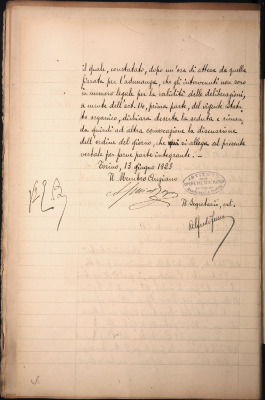 il quale, constatato, dopo un'ora di attesa da quella
fissata per l'adunanza, che gli intervenuti non sono
in numero legale per la validità delle deliberazioni,
a mente dell'art. 14, prima parte, del vigente Statu-
to organico, dichiara deserta la seduta e riman-
da quindi ad altra convocazione la discussione
dell'ordine del giorno, che qui si allega al presente
verbale per farne parte integrante. —
Torino, 13 giugno 1923
Il Membro Anziano
Il Segretario, int.